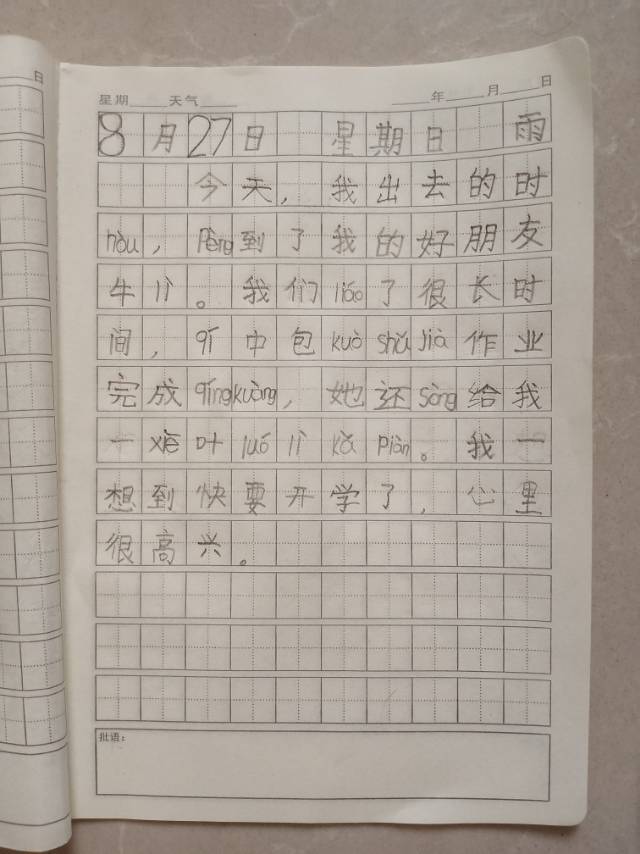 日
星期 天气 年 月 日
8月27日 星期日 雨
今天，我出去的时
hòu，Pèng到了我的好朋友
牛lì。我们liáo了很长时
间，qí中包kuò shǔ jià作业
完成qíng kuàng，她还sòng给我
一xiē叶luó lì kǎ piàn。我一
想到快要开学了，心里
很高兴。
批语：